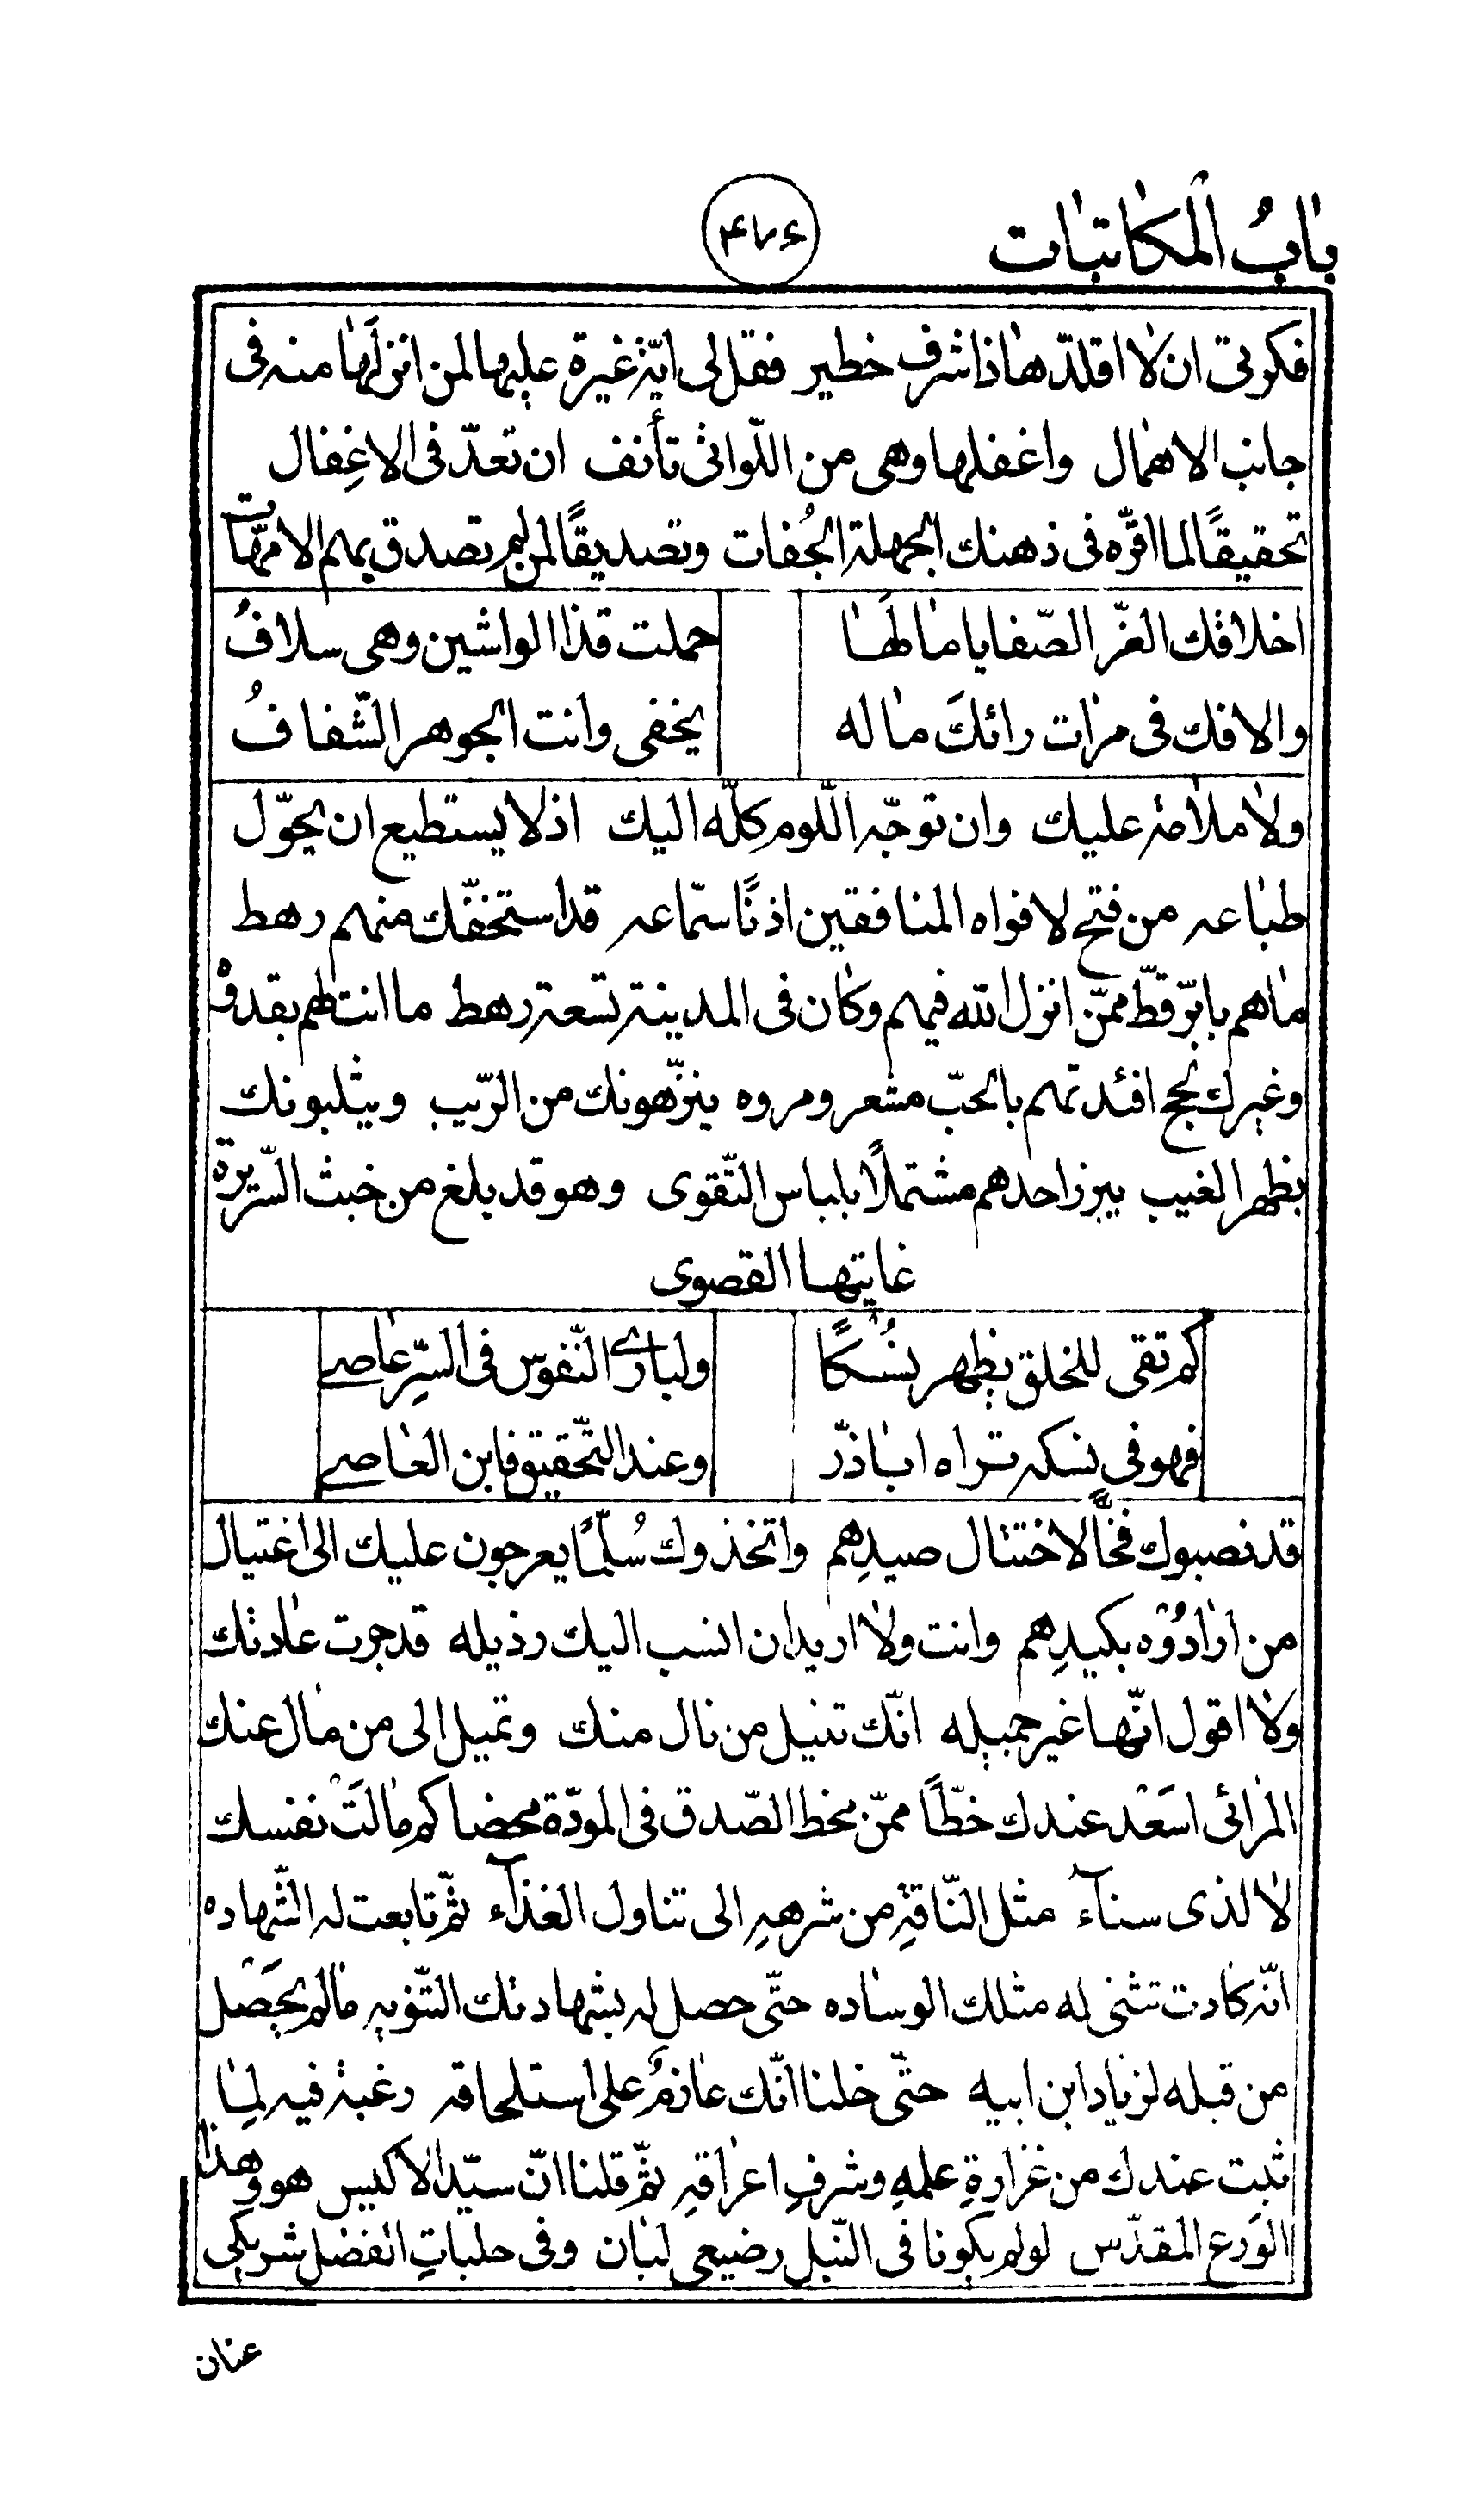 باب المكاتبات
۴۷۶
فكرتى ان لا اقلدّ هاذا شرف خطير فقل لى ايّة غيرة عليها لمن انزلها منه فى
جانب الاهمال واغفلها وهى من اللّواتى تأنف ان تعدّ فى الاغفال
تحقيقًا لما اقرّه فى ذهنك الجهلة الجُفات وتصديقًا لمن لم تصدق بهم الامّهات
اخلاقك الغرّ الصّفايا ما لها حملت قذا الواشين وهى سلافُ
والافك فى مرات رائكَ ما له يخفى وانت الجوهر الشّفافُ
ولا ملامة عليك وان توجّه اللّوم كلّه اليك اذ لا يستطيع ان يحوّل
طباعه من فتح لافواه المنافقين اذنًا سمّاعه قد استخفّك منهم رهط
ما هم بابرّ قطّ ممّن انزل الله فيهم وكان فى المدينة تسعة رهط ما انت لهم بقدوه
وغيرك لحج افئدتهم بالحبّ مشعر ومروه ينزّهونك من الرّيب ويثلبونك
بظهر الغيب يبرز احدهم مشتملًا بلباس التّقوى وهو قد بلغ من خبث السّريرة
غايتها القصوى
كم تقى للخلق يظهر نسُكًا ولبارئ النّفوس فى السّرِ عاصى
فهو فى نسكه تراه اباذرّ وعند التّحقيق فابن العاصى
قد نصبوك فخّا لاختتال صيدِهم واتخذوك سُلّمًا يعرجون عليك الى اغتيال
من ارادُوْه بكيدِهم وانت ولا اريد ان انسب اليك رذيله قد جرت عادتك
ولا اقول انّها غير جميله انّك تنيل من نال منك وتميل الى من مال عنك
المرائى اسَعْد عندك حظّاً ممّن مخط الصّدق فى المودّة محضا كم مالَتْ نفسك
لا لذى سناء مثل النّاقةِ من شرههِ الى تناول الغذاء ثمّ تابعت له الشّهاده
انّه كادت تثنى له مثلك الوساده حتّى حصل له بشهادتك التّنويه ما لم يحصَل
من قبله لزياد ابن ابيه حتّى خلنا انّك عازمٌ على استلحاقه رغبة فيه لِما
ثبت عندك من غزارةِ علمهِ وشرفِ اعراقهِ ثمّ قلنا انّ سيّد الاكيس هو وهذا
الوَرع المقدّس لو لم يكونا فى النّبل رضيعى لبان وفى حلباتِ الفضل شريكى
عنان